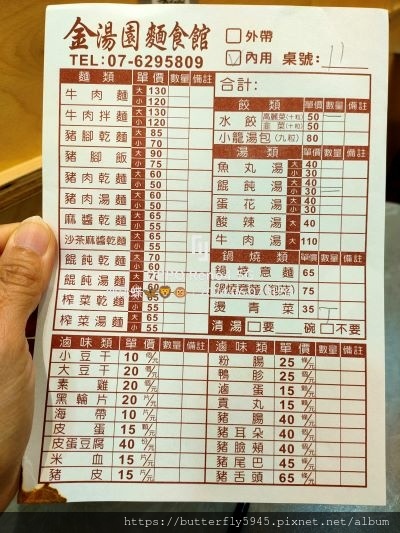 金湯園麵食館
TEL:07-6295809
□外帶
☑內用 桌號: 11
麵類 單價 數量 備註
牛肉麵 大 130 小 120
牛肉拌麵 大 130 小 120
豬腳乾麵 大 85 小 70
豬腳飯 大 90 小 75
豬肉乾麵 大 70 小 60
豬肉湯麵 大 70 小 60
麻醬乾麵 大 65 小 55
沙茶麻醬乾麵 大 65 小 55
餛飩乾麵 大 70 小 60
餛飩湯麵 大 70
榨菜乾麵 大 65 小 55
榨菜湯麵 大 65 小 55
合計:
餃類 單價 數量 備註
水餃 高麗菜(十粒) 50 韭菜(十粒) 50
小龍湯包(九粒) 80
湯類 單價 數量 備註
魚丸湯 大 40 小 30
餛飩湯 大 40 小 30
蛋花湯 大 40 小 30
酸辣湯 大 40 小 30
牛肉湯 大 110
鍋燒類 單價 數量 備註
鍋燒意麵 65
75
燙青菜 35
清湯 □要 碗 □不要
滷味類 單價 數量 備註
小豆干 10 個/元
大豆干 20 個/元
素雞 20 個/元
黑輪片 20 片/元
海帶 10 片/元
皮蛋 15 顆/元
皮蛋豆腐 40 份/元
米血 15 片/元
豬皮 15 片/元
滷味類 單價 數量 備註
粉腸 25 條/元
鴨胗 25 個/元
滷蛋 15 顆/元
貢丸 15 顆/元
豬腸 40 條/元
豬耳朵 40 條/元
豬臉頰 40 條/元
豬尾巴 45 條/元
豬舌頭 65 條/元
https://butterfly5945.pixnet.net/album